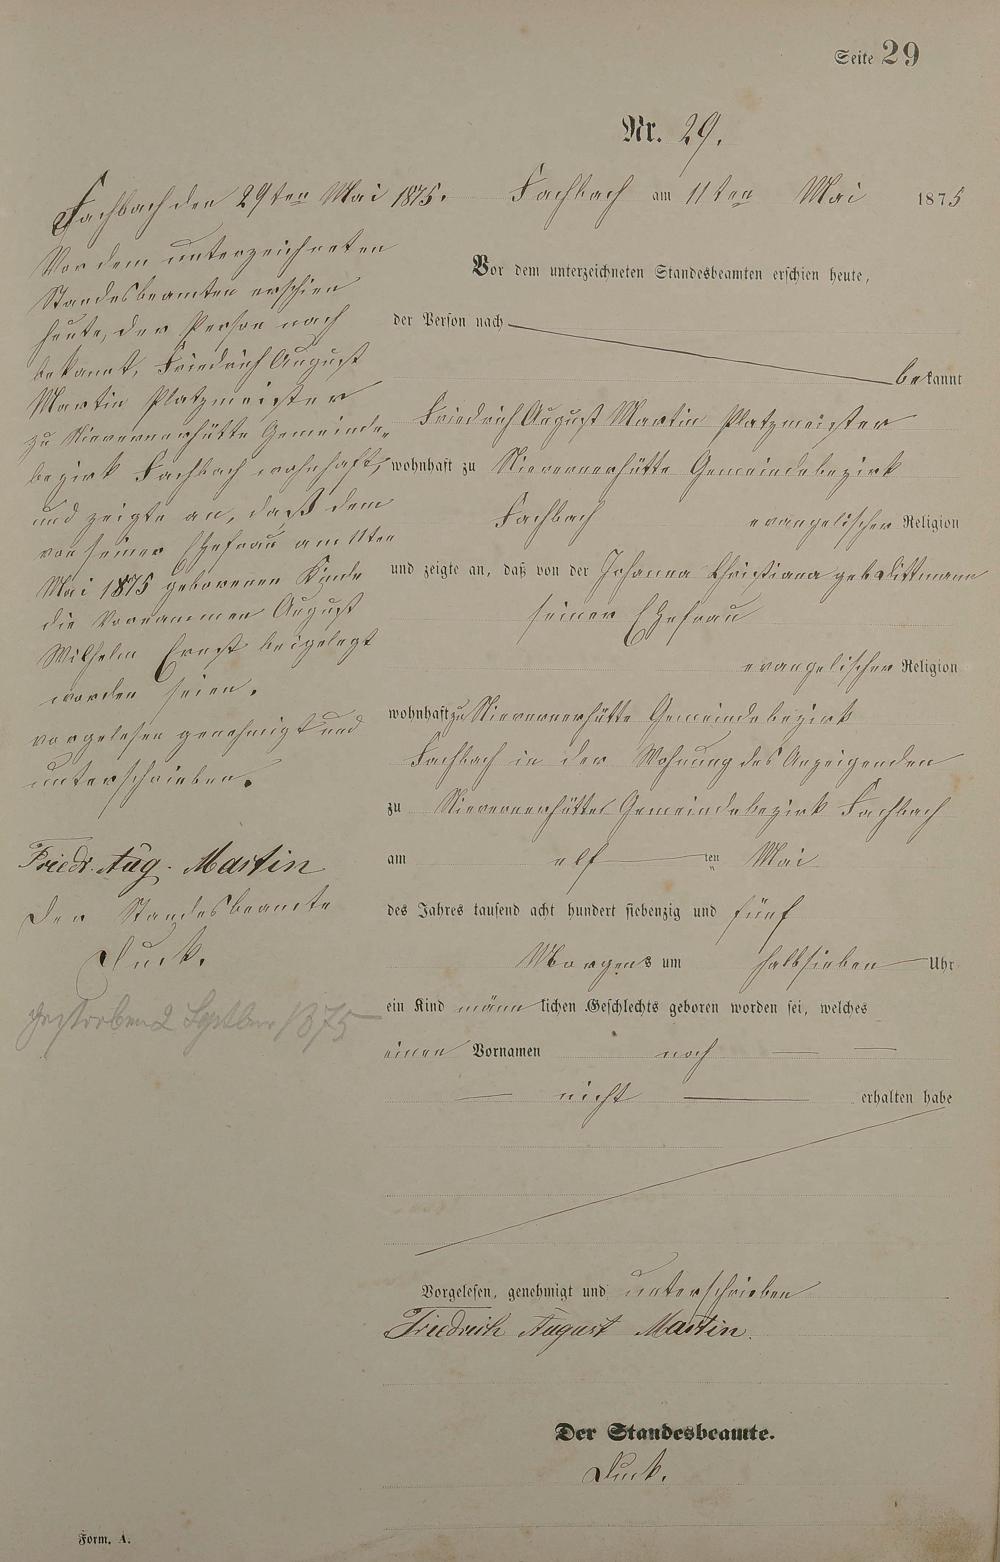 Seite 29
Nr. 29.
Fachbach den 29ten Mai 1875.
Vor dem unterzeichneten
Standesbeamten erschien
heute, der Person nach
bekannt, Friedrich August
Martin Platzmeister
zu Nievernerhütte Gemeinde-
bezirk Fachbach wohnhaft,
und zeigte an, daß dem
von seiner Ehefrau am 11ten
Mai 1875 geborenen Kinde
die Vornammen August
Wilhelm Ernst beigelegt
worden seien.
vorgelesen genehmigt und
unterschrieben.
Friedr. Aug. Martin
Der Standesbeamte
Duck.
gestorben 2 Septber 1875
Fachbach am 11ten Mai 1875
Vor dem unterzeichneten Standesbeamten erschien heute,
der Person nach
bekannt
Friedrich August Martin Platzmeister
wohnhaft zu Nievernerhütte Gemeindebezirk
Fachbach evangelischer Religion
und zeigte an, daß von der Johanna Christiana geb Dittmann
seiner Ehefrau
evangelischer Religion
wohnhaft zu Nievernerhütte Gemeindebezirk
Fachbach in der Wohnung des Anzeigenden
zu Nievernerhütte Gemeindebezirk Fachbach
am elf ten Mai
des Jahres tausend acht hundert siebenzig und fünf
Morgens um halbsieben Uhr
ein Kind männlichen Geschlechts geboren worden sei, welches
einen Vornamen noch
nicht erhalten habe
Vorgelesen, genehmigt und unterschrieben
Friedrich August Martin.
Der Standesbeamte.
Duck.
Form. A.